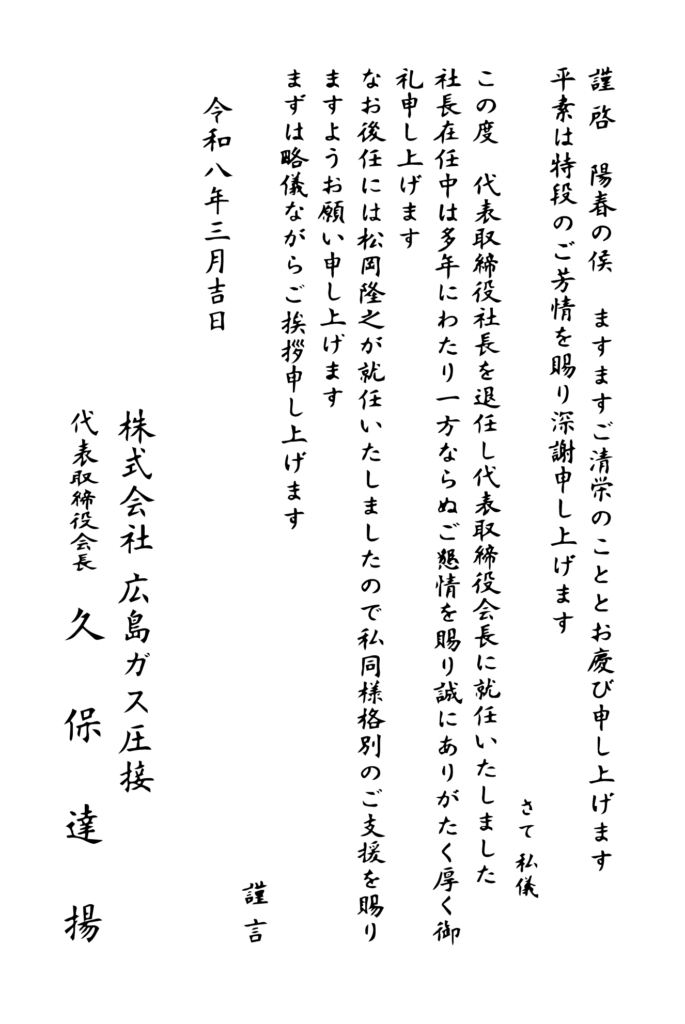 謹啓　陽春の候　ますますご清栄のこととお慶び申し上げます
平素は特段のご芳情を賜り深謝申し上げます
さて私儀
この度　代表取締役社長を退任し代表取締役会長に就任いたしました
社長在任中は多年にわたり一方ならぬご懇情を賜り誠にありがたく厚く御
礼申し上げます
なお後任には松岡隆之が就任いたしましたので私同様格別のご支援を賜り
ますようお願い申し上げます
まずは略儀ながらご挨拶申し上げます
謹言
令和八年三月吉日
株式会社 広島ガス圧接
代表取締役会長　久保達揚